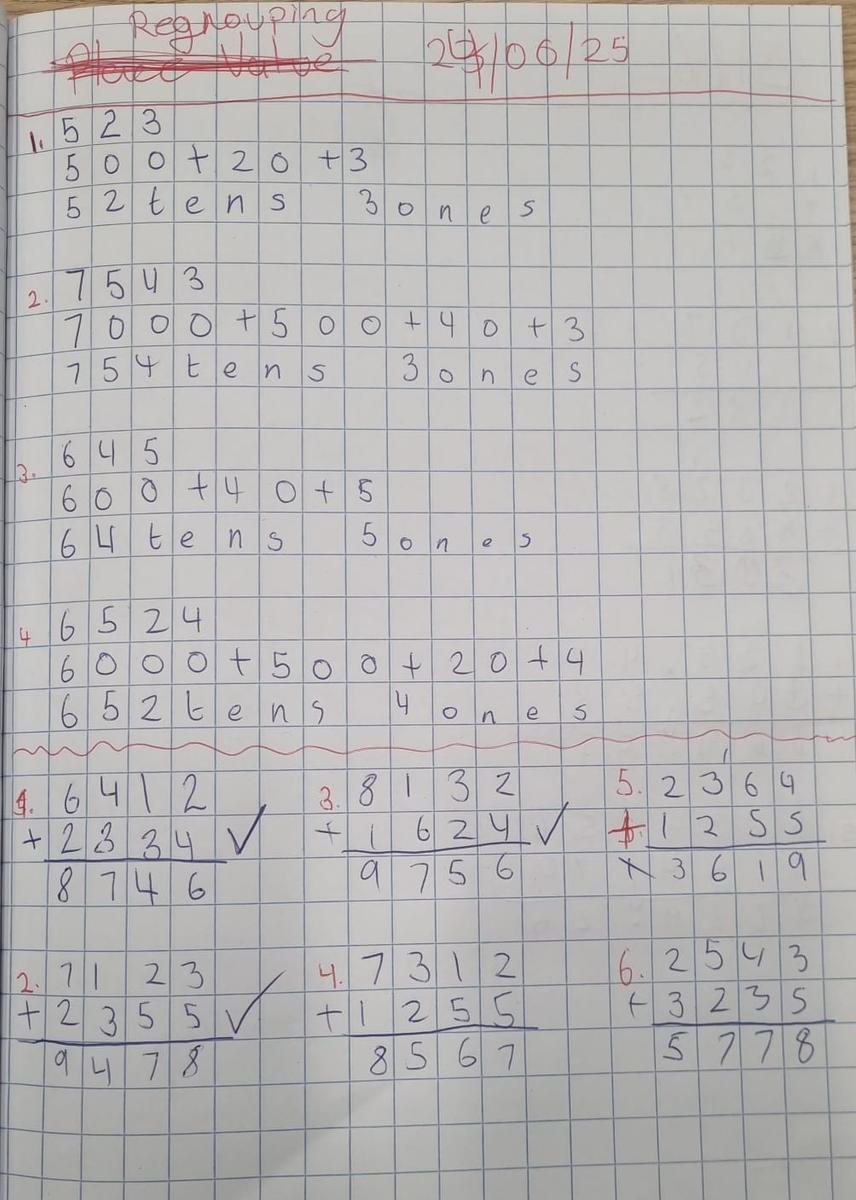 Regrouping
Place Value
24/06/25
1. 523
500+20+3
52tens 3ones
2. 7543
7000+500+40+3
754tens 3ones
3. 645
600+40+5
64tens 5ones
4 6524
6000+500+20+4
652tens 4ones
1. 6412
+2334 ✓
8746
3. 8132
+1624 ✓
9756
1
5. 2364
+1255
3619
2. 7123
+2355 ✓
9478
4. 7312
+1255
8567
6. 2543
+3235
5778